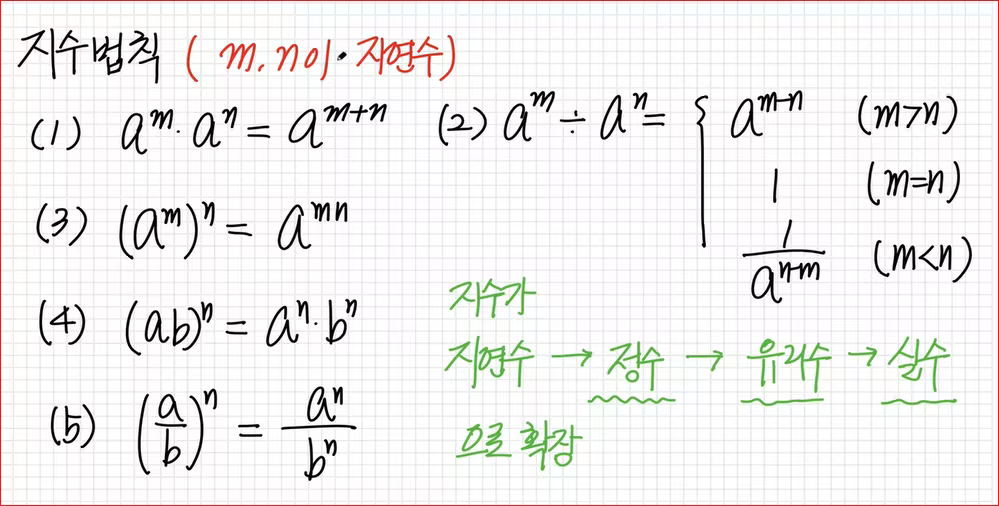 지수법칙 ( m, n이 자연수)
(1) a^m · a^n = a^{m+n} (2) a^m ÷ a^n = { a^{m-n} (m>n)
1 (m=n)
1/a^{n-m} (m<n)
(3) (a^m)^n = a^{mn}
(4) (ab)^n = a^n · b^n
(5) (a/b)^n = a^n/b^n
지수가
자연수 → 정수 → 유리수 → 실수
으로 확장